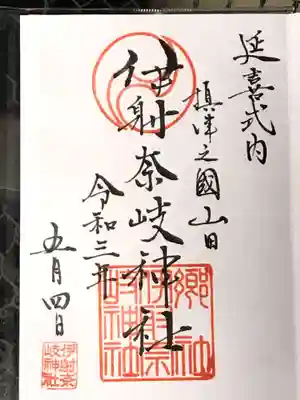 延喜式内
摂津之國山田
伊射奈岐神社
令和三年
五月四日
郷社
伊射奈
岐神社
伊射奈
岐神社